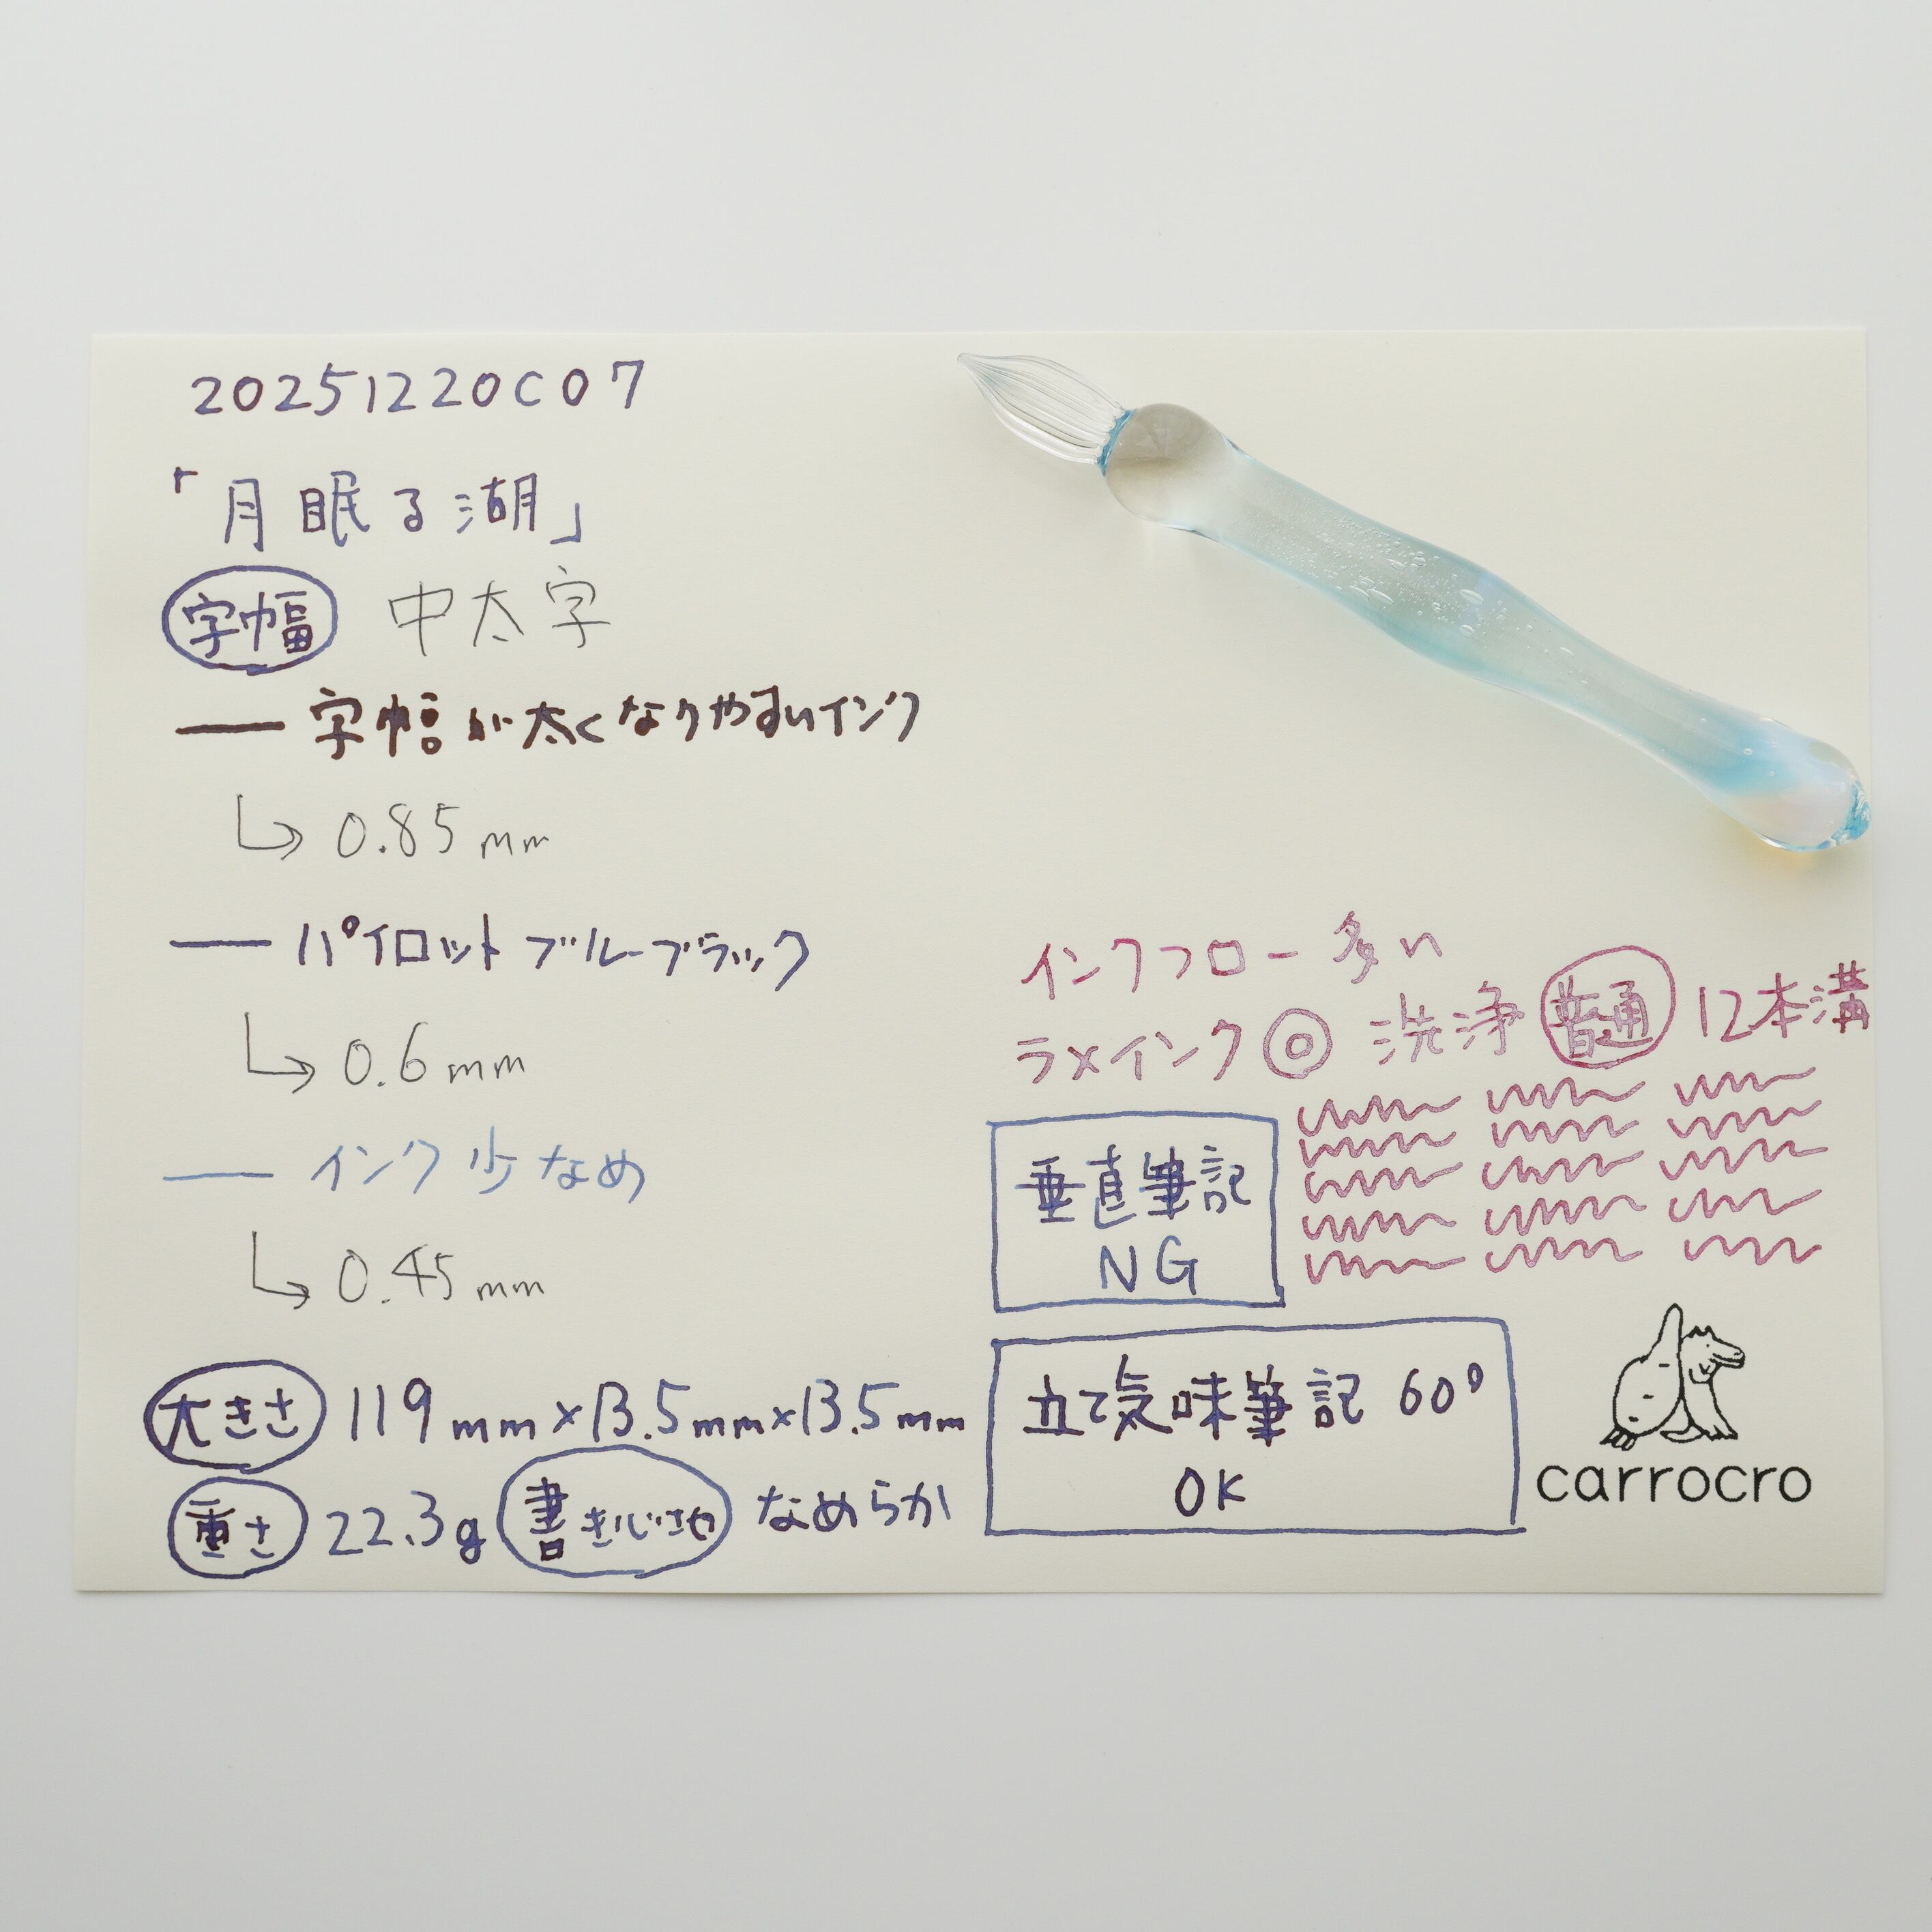 20251220C07
「月眠る湖」
字幅 中太字
字幅が太くなりやすいインク
0.85mm
パイロット ブルーブラック
0.6mm
インク少なめ
0.45mm
大きさ 119mm×13.5mm×13.5mm
重さ 22.3g 書き心地 なめらか
インクフロー多い
ラメインク◎ 洗浄 普通 12本溝
垂直筆記
NG
立て気味筆記 60°
OK
carrocro